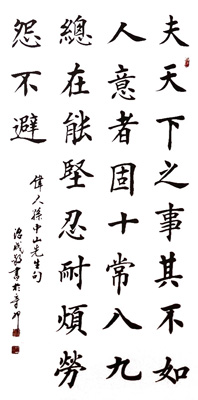 夫天下之事其不如
人意者固十常八九
總在能堅忍耐煩勞
怨不避
偉人孫中山先生句